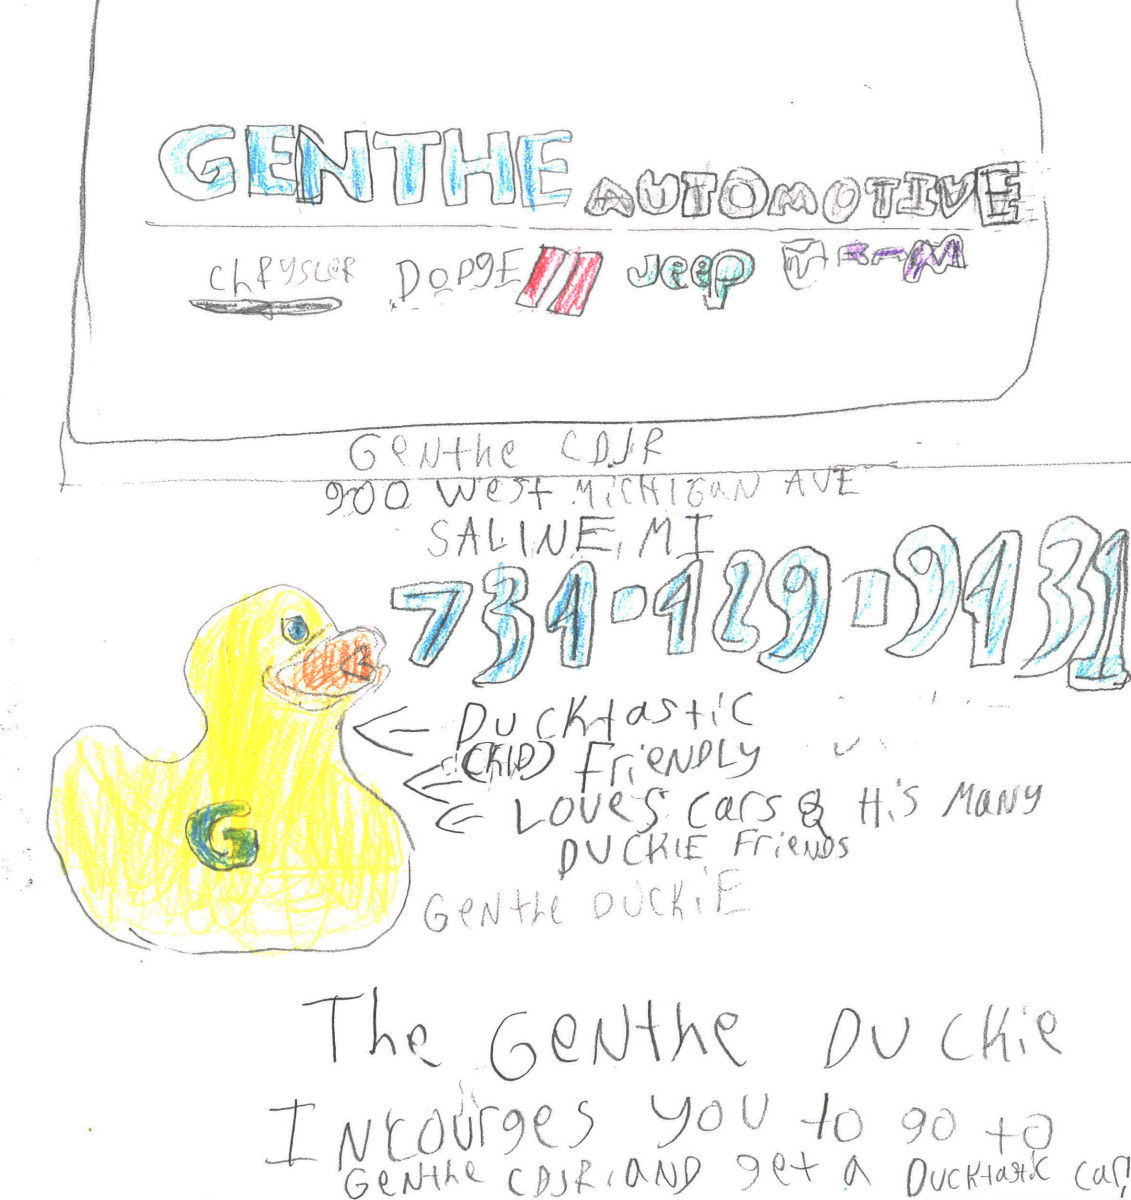 GENTHE AUTOMOTIVE
CHRYSLER DODGE Jeep RAM
Genthe CDJR
900 West MICHIGAN AVE
SALINE, MI
734-429-9431
DUCKtastic
(KID) FRIENDLY
LOVES cars & His MANY
DUCKIE FRIENDS
GENthe DUCKiE
G
The GENthe DUCKie
INcourges you to go to
Genthe CDJR, AND get a Ducktastic car!